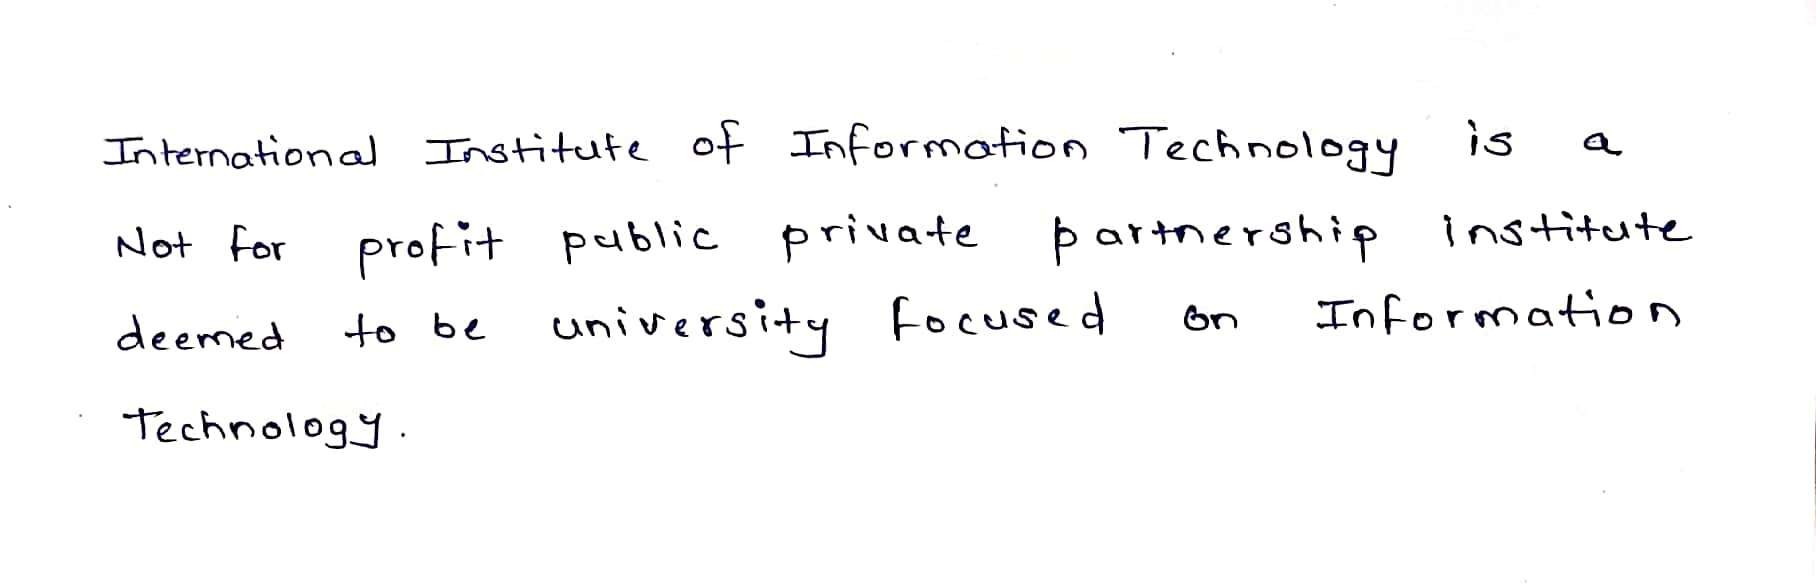 International Institute of Information Technology is a
Not for profit public private partnership institute
deemed to be university focused on Information
Technology.